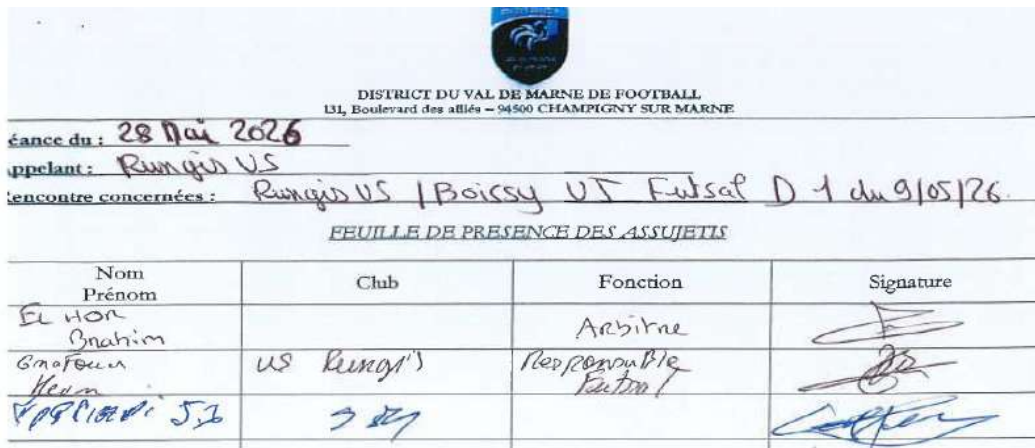 DISTRICT DU VAL DE MARNE DE FOOTBALL
131, Boulevard des alliés – 94500 CHAMPIGNY SUR MARNE
éance du : 28 Mai 2026
ppelant : Rungis US
encontre concernées : Rungis US / Boissy UJ Futsal D 1 du 9/05/26.
FEUILLE DE PRESENCE DES ASSUJETIS
Nom Prénom Club Fonction Signature
EL HOR Brahim Arbitre
US Rungis Responsable Futsal